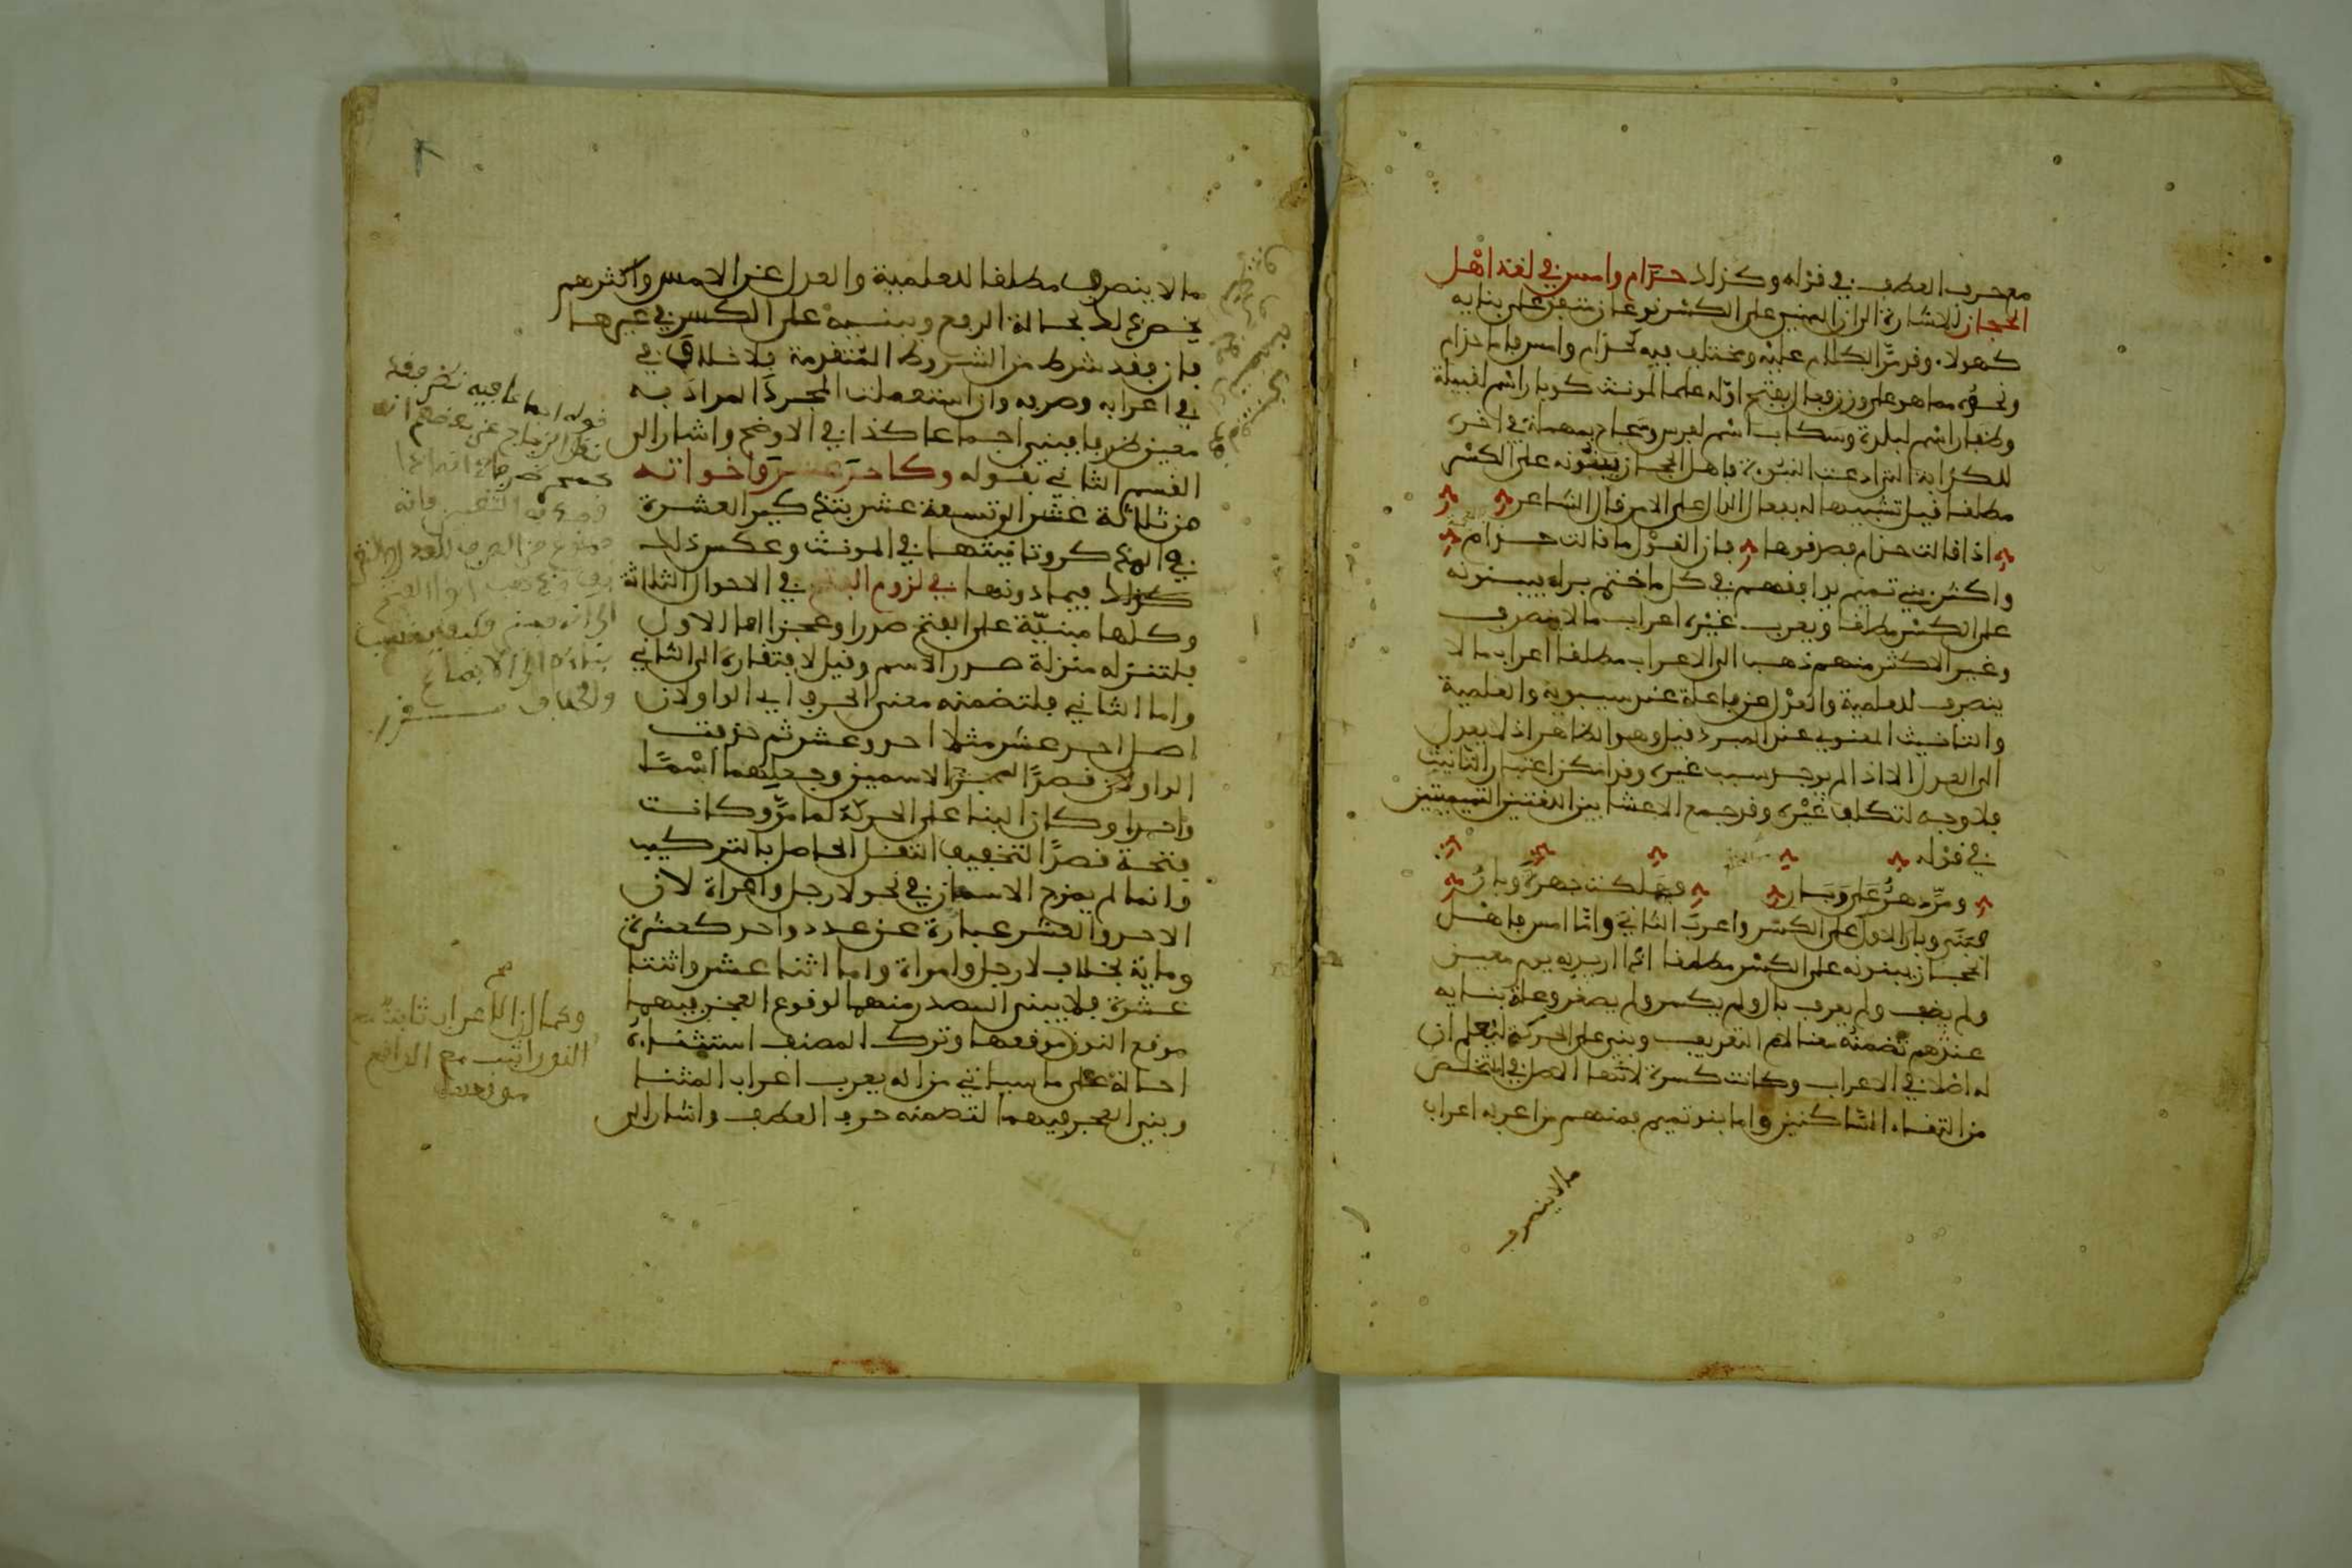 مع حرف العطف في قوله وكذلك حذام وامس في لغة اهل
الحجاز للاشارة الى ان المبني على الكسر نوعان متفق على بنايه
كهولا وقد مر الكلام عليه ومختلف فيه كحذام وامس فاما حذام
ونحوه مما هو على وزن فعال بفتح اوله علما لمونث كوبار اسم لقبيلة
وظفار اسم لبلدة وسكاب اسم لفرس وسجاح بمهملة في اخره
للكذابة التي ادعت النبوة فاهل الحجاز يبنونه على الكسر
مطلقا قيل تشبيها له بفعال الدال على الامر قال الشاعر
اذا قالت حذام فصدقوها فان القول ما قالت حذام
واكثر بني تميم يوافقهم في كل ما ختم براء يبنونه
على الكسر مطلقا ويعرب غيره اعراب ما لا ينصرف
وغير الاكثر منهم ذهب الى الاعراب مطلقا اعراب ما لا
ينصرف للعلمية والعدل عن فاعلة عند سيبويه والعلمية
والتانيث المعنوي عند المبرد قيل وهو الظاهر اذ لا يعدل
الى العدل الا اذا لم يوجد سبب غيره وقد امكن اعتبار التانيث
فلا وجه لتكلف غيره وقد جمع الاعشا بين اللغتين التميميتين
في قوله
ومر دهر على وبار فهلكت جهرة وبار
فبنى وبار الاول على الكسر واعرب الثاني واما امس فاهل
الحجاز يبنونه على الكسر مطلقا اذا اريد به يوم معين
ولم يضف ولم يعرف بال ولم يكسر ولم يصغر وعلة بنايه
عندهم تضمنه معنا لام التعريف وبني على الحركة ليعلم ان
له اصلا في الاعراب وكانت كسرة لانها الاصل في التخلص
من التقاء الساكنين واما بنو تميم فمنهم من اعربه اعراب
ما لا ينصرف
ما لا ينصرف مطلقا للعلمية والعدل عن الامس واكثرهم
يخص ذلك بحالة الرفع ويبنيه على الكسر في غيرها
فان فقد شرط من الشروط المتقدمة فلا خلاف في
في اعرابه وصرفه وان استعملت المجرد المراد به
معين ظرفا فبني اجماعا كذا في الاوضح واشار الى
القسم الثاني بقوله وكاحد عشر واخواته
من ثلاثة عشر الى تسعة عشر بتذكير العشرة
في المذكر وتانيثها في المونث وعكس ذلك
كذلك فيما دونها في لزوم الفتح في الاحوال الثلاثة
وكلها مبنية على الفتح صدرا وعجزا اما الاول
فلتنزله منزلة صدر الاسم وقيل لافتقاره الى الثاني
واما الثاني فلتضمنه معنى الحرف اي الواو لان
اصل احد عشر مثلا احد وعشر ثم حذفت
الواو لان قصد المزج الاسمين وجعلهما اسما
واحدا وكان البنا على الحركة لما مر وكانت
فتحة قصدا لتخفيف الثقل الحاصل بالتركيب
وانما لم يمزج الاسمان في نحو لا رجل وامراة لان
الاحد والعشر عبارة عن عدد واحد كعشرة
وماية بخلاف لا رجل وامراة واما اثنا عشر واثنتا
عشرة فلا يبنى الصدر منهما لوقوع العجز فيهما
موقع النون موقعها وترك المصنف استثناءه
احالة على ما سياتي من انه يعرب اعراب المثنا
وبني العجز فيهما لتضمنه حرف العطف واشار الى
قوله اجماعا فيه نظر فقد
نقل الزجاج عن بعضهم انه
وكما ان الاعراب ثابت مع
النون اثبت مع الواقع
موقعها